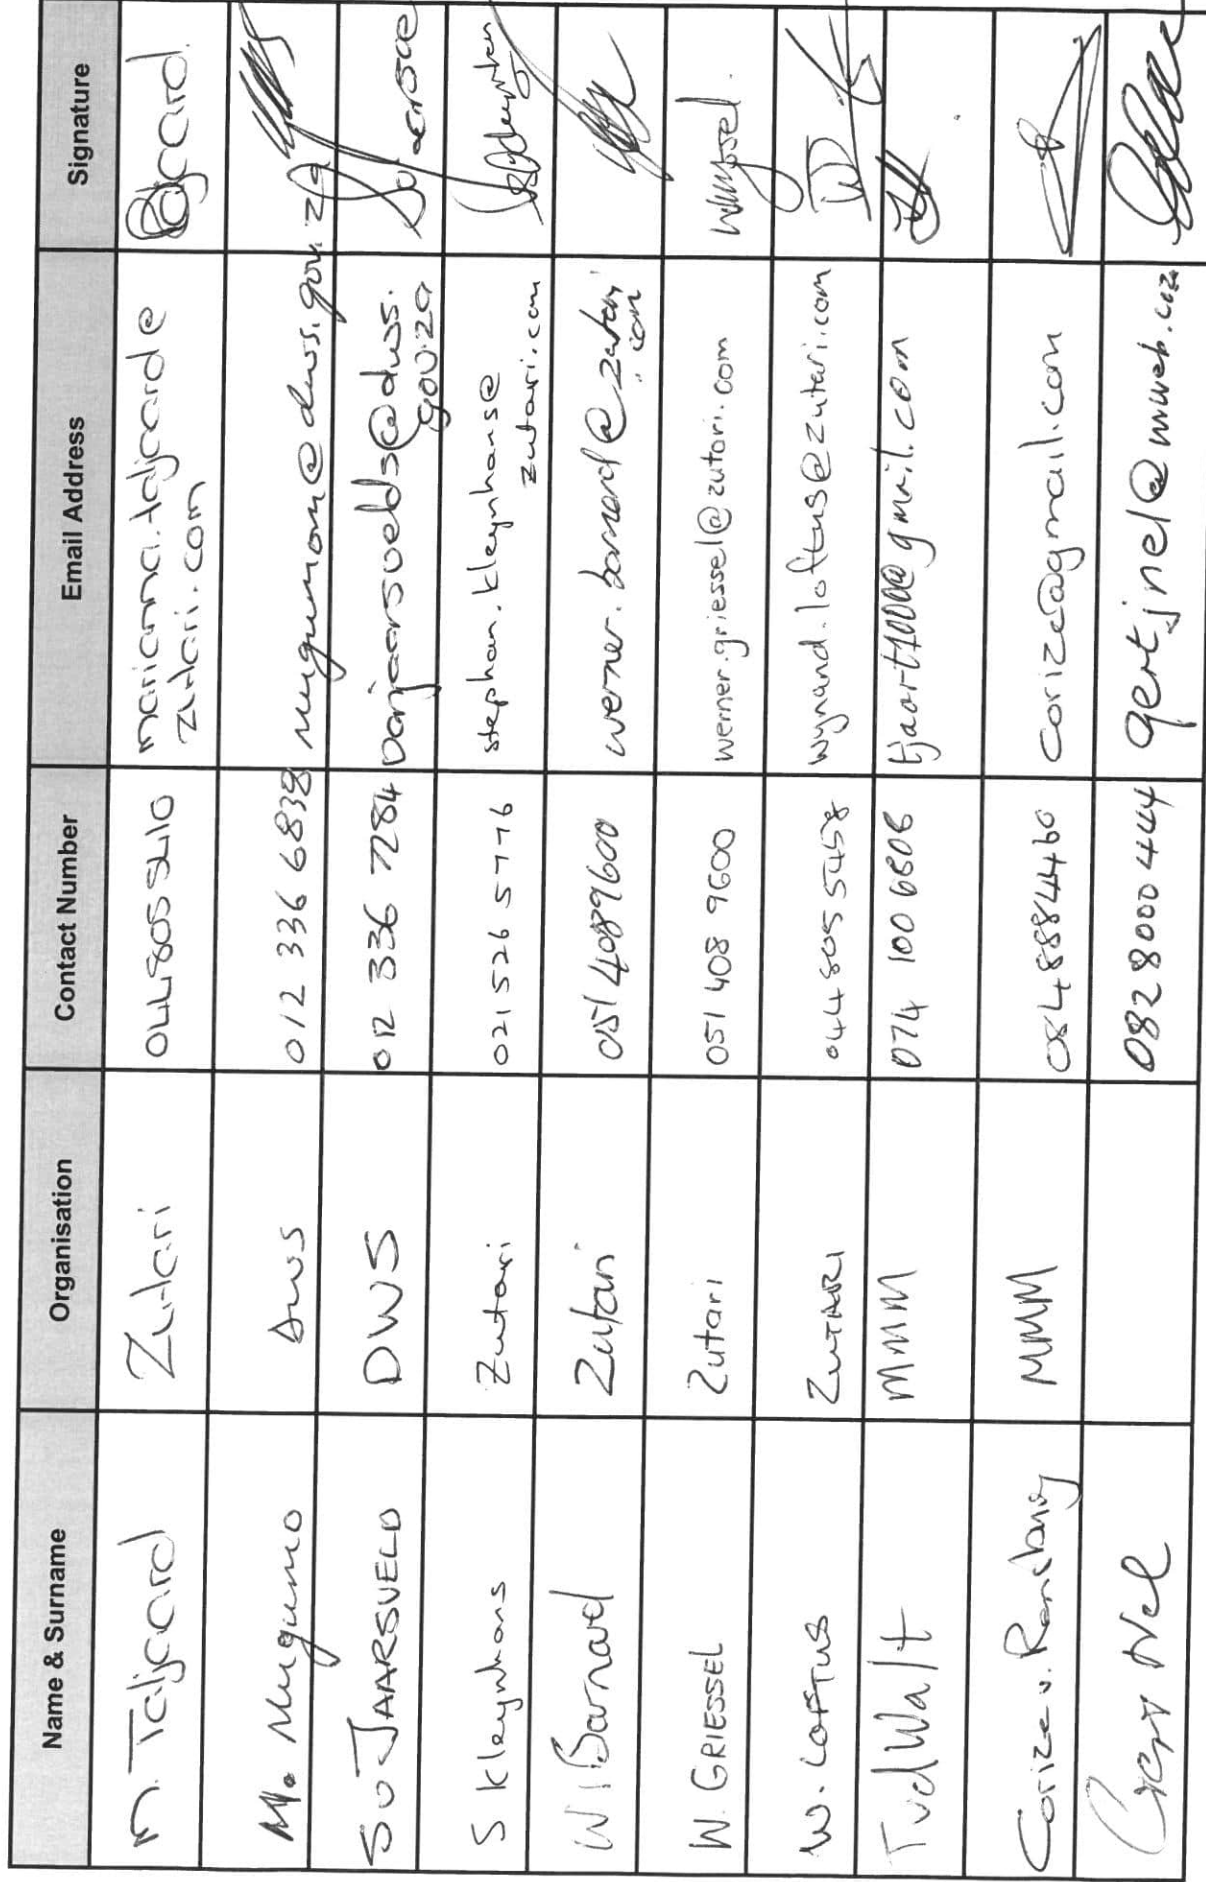 Name & Surname Organisation Contact Number Email Address Signature
M. Taljaard Zutari 0448055410 marianna.taljaard@
zutari.com
M. Mugumo DWS 012 336 6838 mugumom@dws.gov.za
S v JAARSVELD DWS 012 336 7284 Vanjaarsvelds@dws.
gov.za
S Kleynhans Zutari 021 526 5776 stephan.kleynhans@
zutari.com
W. Barnard Zutari 051 4089600 werner.barnard@zutari
.com
W. GRIESSEL Zutari 051 408 9600 werner.griessel@zutari.com WGriessel.
W. LOFTUS ZUTARI 044 805 5458 wynand.loftus@zutari.com
T vd Walt MMM 074 100 6806 tjaart1000@gmail.com
Corize v. MMM 084 8884460 corize@gmail.com
Gert Nel 082 8000 444 gertjnel@mweb.co.za